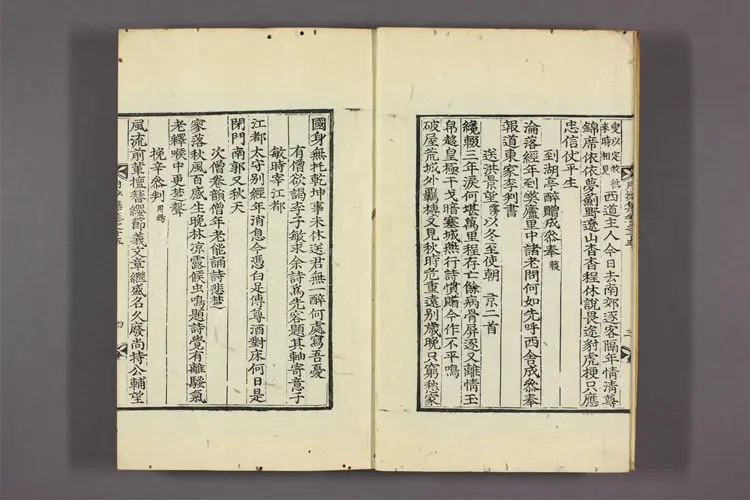 西道主人今日去南郊逐客隔年情清尊
錦席依依夢劉野遼山杳杳程休說畏途豺虎梗只應
忠信仗平生
到湖亭醉贈成叅奉
淪落經年到弊廬里中諸老問何如先呼西舍成叅奉
報道東家李判書
送洪景望霶以冬至使朝 京二首
纔輟三年淚何堪萬里程存亡餘病骨屏逐又離情玉
帛趍皇極干戈暗塞城燕行詩慣賦今作不平鳴
破屋荒城外羈棲又見秋時危重遠別歲晚只窮愁家
國身無托乾坤事未休送君無一醉何處寫吾憂
有僧欲謁李子敏求余詩爲先容題其軸寄意子
敏時宰江都
江都太守別經年消息今憑白足傳尊酒對床何日是
閉門南郭又秋天
次僧卷韻僧年老能誦詩悲楚
落秋風百感生晩林凉露候虫鳴題詩覺有離騷氣
老釋喉中更楚聲
挽辛叅判
風流前輩擅簪纓節義文章繼盛名久廢尚持公輔望
四